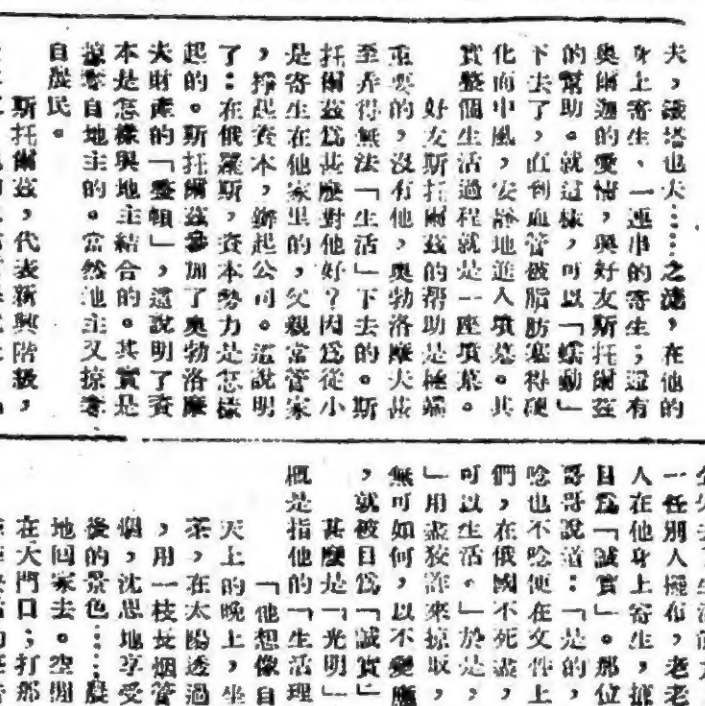 夫，潑塔也夫……之流，在他的
身上寄生、一連串的寄生；還有
奧爾迦的愛情，與好友斯托爾茲
的幫助。就這樣，可以「蠕動」
下去了，直到血管被脂肪塞得硬
化而中風，安靜地進入墳墓。其
實整個生活過程就是一座墳墓。
好友斯托爾茲的幫助是極端
重要的，沒有他，奧勃洛摩夫甚
至弄得無法「生活」下去的。斯
托爾茲爲甚麼對他好？因爲從小
是寄生在他家里的，父親當管家
，掙起資本，辦起公司。這說明
了：在俄羅斯，資本勢力是怎樣
起的。斯托爾茲參加了奧勃洛摩
夫財產的「整頓」，這說明了資
本是怎樣與地主結合的。其實是
掠奪自地主的。當然地主又掠奪
自農民。
斯托爾茲，代表新興階級，
一任別人擺布，老老
人在他身上寄生，掠
目爲「誠實」。那位
哥哥說道：「是的，
唸也不唸便在文件上
們，在俄國不死盡，
可以生活。」於是，
」用盡狡詐來掠取，
無可如何，以不變應
，就被目爲「誠實」
甚麼是「光明」
概是指他的「生活理
「他想像自
天上的晚上，坐
茶，在太陽透過
，用一枝長烟管
烟，沈思地享受
後的景色……農
地回家去。空閒
在大門口；打那